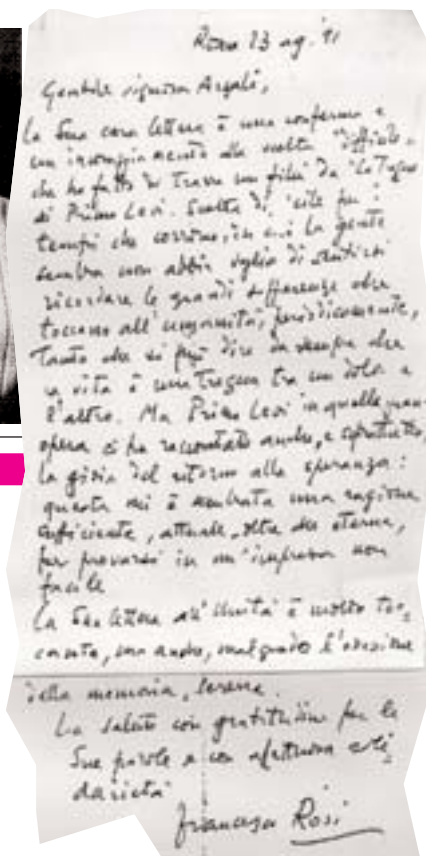 Roma 23 ag. '91
Gentile signora Argalè,
La Sua cara lettera è una conferma e
un incoraggiamento alla scelta "difficile"
che ho fatto di trarre un film da "La Tregua"
di Primo Levi. Scelta difficile per i
tempi che corrono, in cui la gente
sembra non abbia voglia di sentirsi
ricordare le grandi sofferenze che
toccano all'umanità, periodicamente,
tanto che si può dire da sempre che
la vita è una tregua tra un dolore e
l'altro. Ma Primo Levi in quella gran
opera ci ha raccontato anche, e soprattutto,
la gioia del ritorno alla speranza:
questa mi è sembrata una ragione
sufficiente, attuale, oltre che eterna,
per provarsi in un'impresa non
facile
La Sua lettera all'Unità è molto toc-
cante, ma anche, malgrado l'ossessione
della memoria, serena.
La saluto con gratitudine per le
Sue parole e con affettuosa soli-
darietà
Francesco Rosi